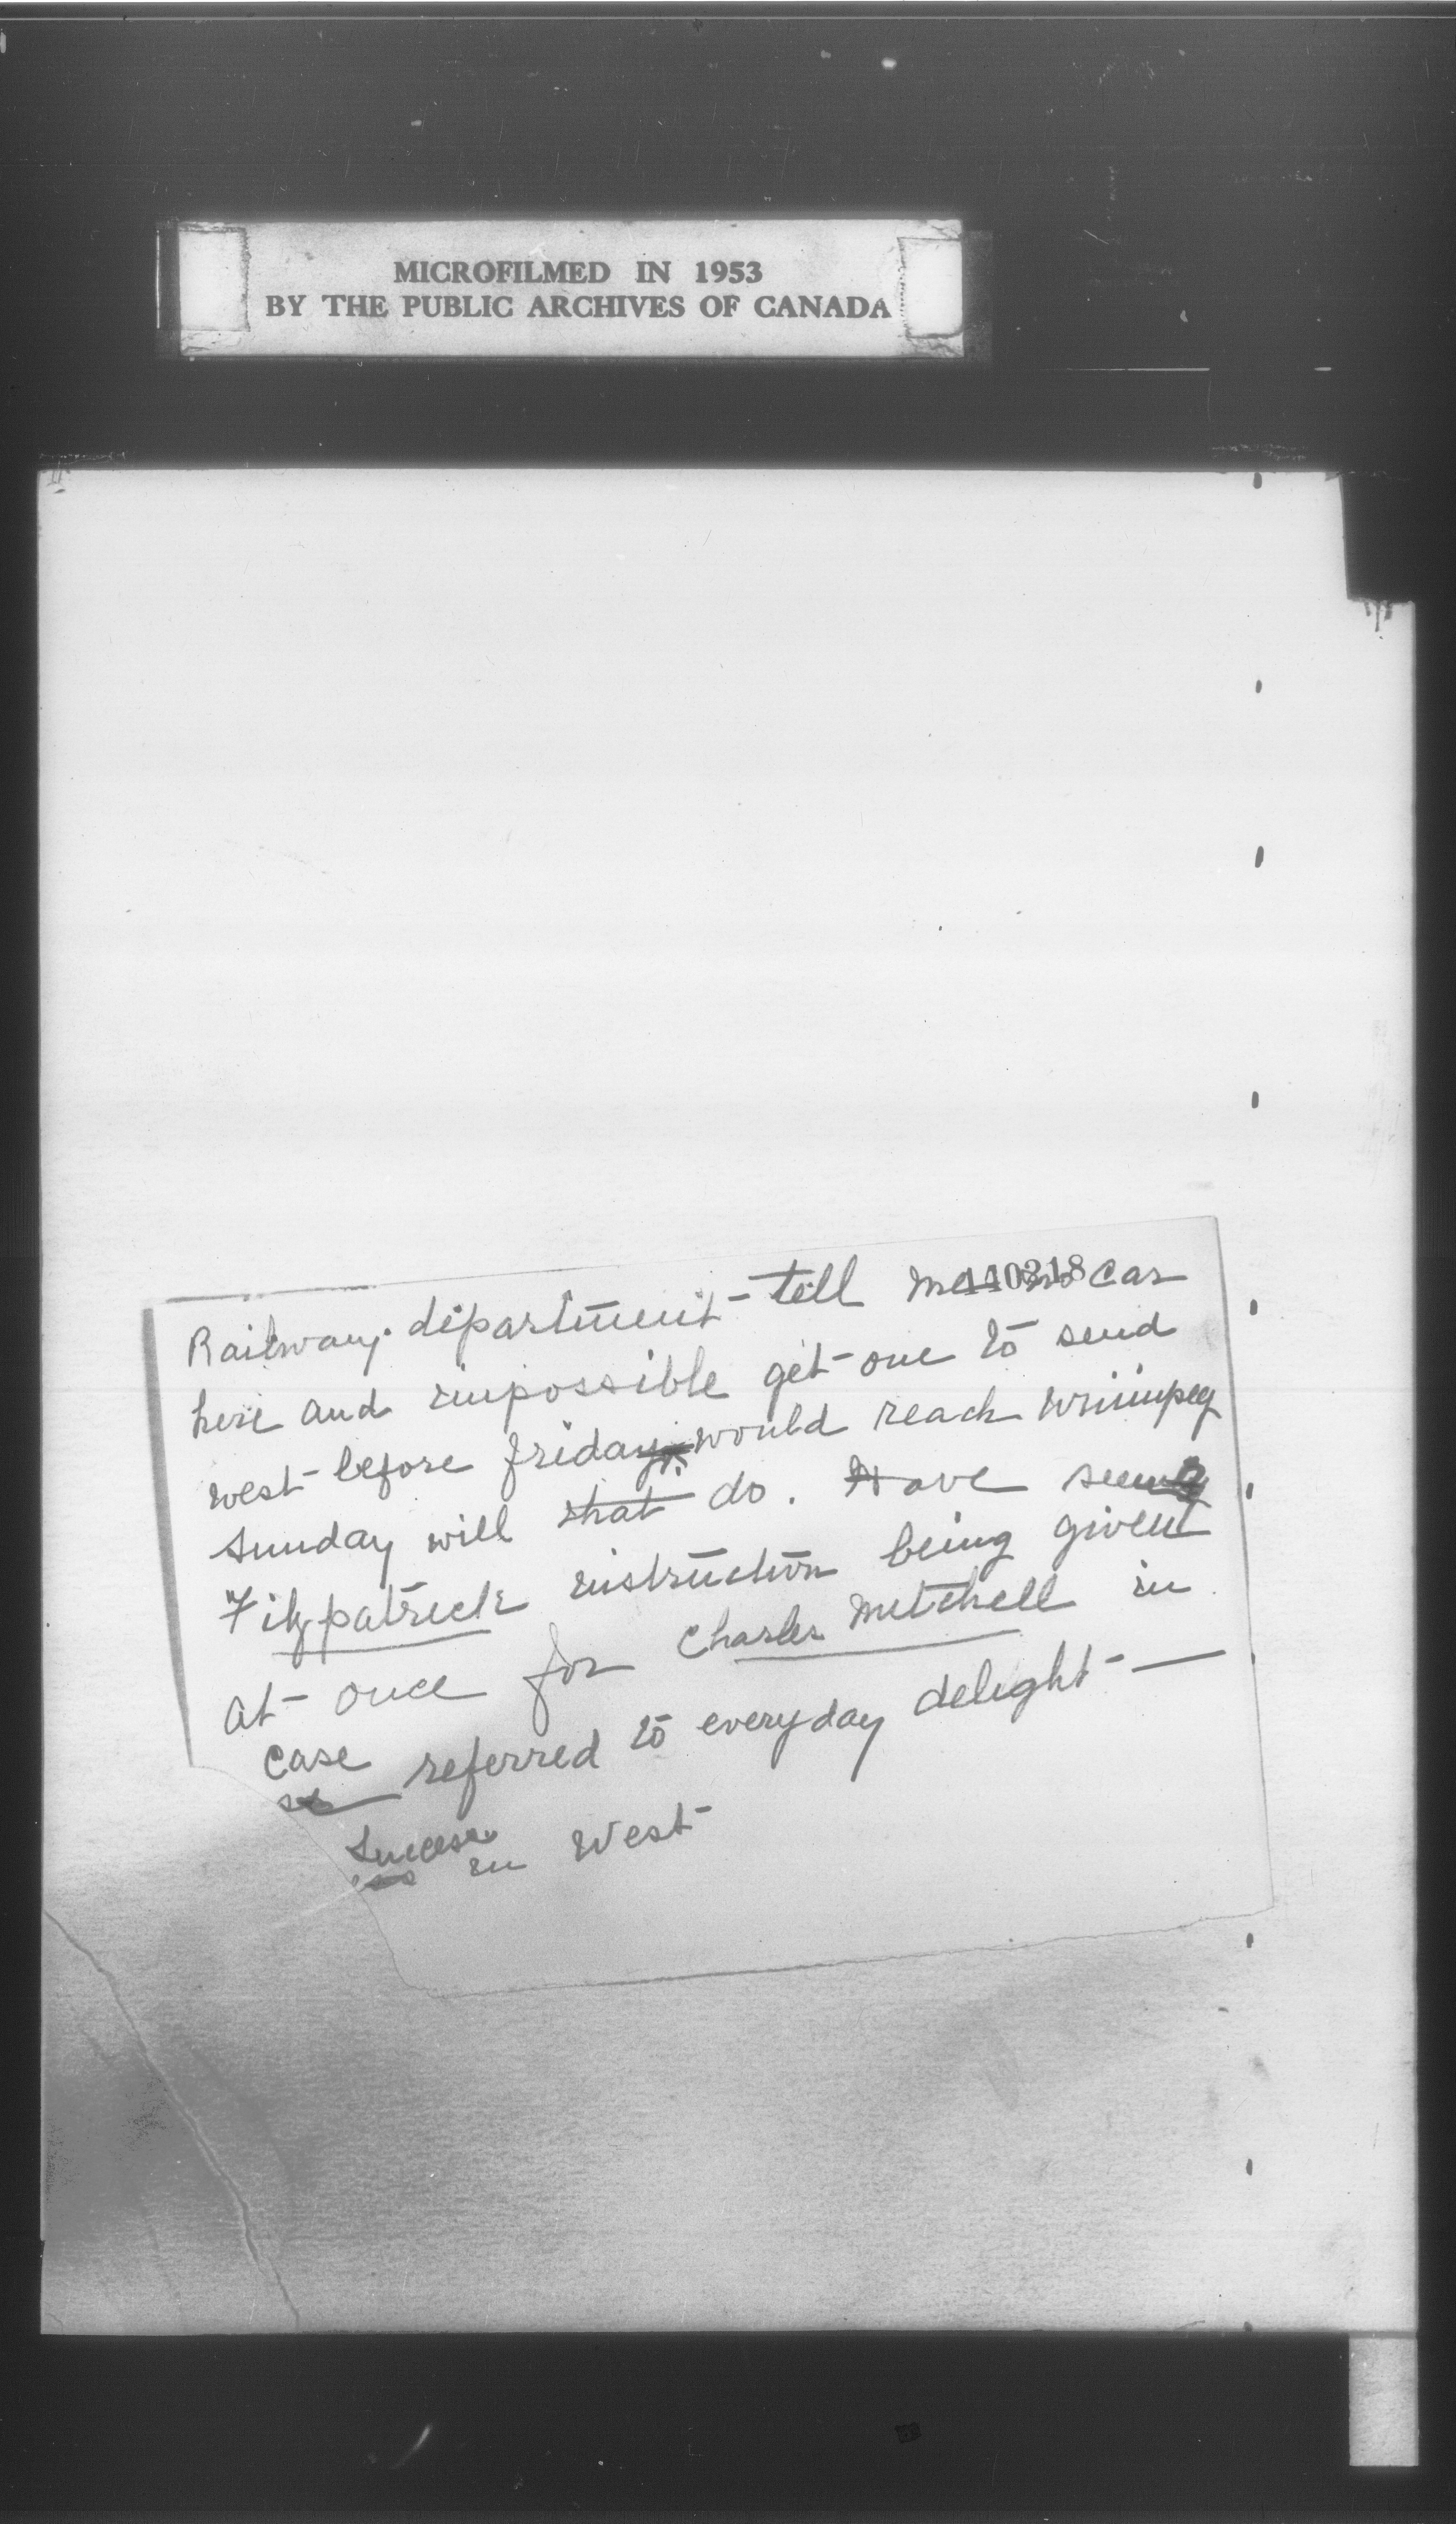 MICROFILMED IN 1953
BY THE PUBLIC ARCHIVES OF CANADA
140318
Railway department tell me no car
here and impossible get one to send
west before friday would reach Winnipeg
Sunday will that do. Have seen
Fitzpatrick instruction being given
at once for Charles Mitchell in
case referred to everyday delight —
Success in West